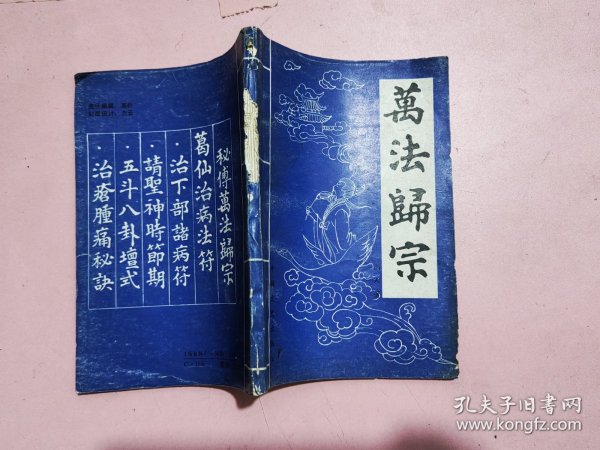 萬法歸宗
秘傳萬法歸宗
葛仙治病法符
·治下部諸病符
·請聖神時節期
·五斗八卦壇式
·治瘡腫痛秘訣
孔夫子旧书网
www.kongfz.com